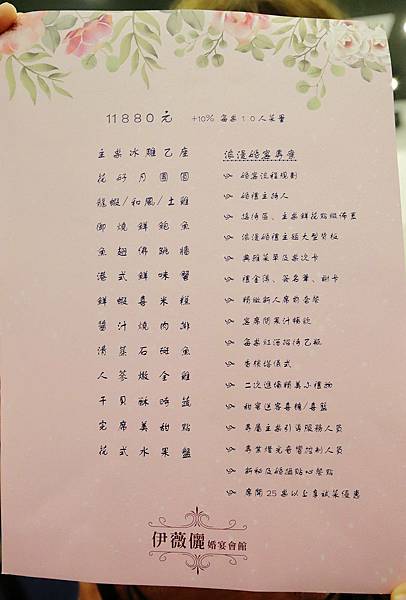 11880元 +10% 每桌10人菜量
主桌冰雕乙座
花好月圓圓
龍蝦/和風/土雞
御燒鮮鮑魚
魚翅佛跳牆
港式鮮味蟹
鮮蝦喜米糕
醬汁燒肉排
清蒸石斑魚
人蔘燉全雞
干貝酥時蔬
完席美甜點
花式水果盤
浪漫婚宴專案
婚宴流程規劃
婚禮主持人
接待區、主桌鮮花點綴佈置
浪漫婚禮主題大型背板
典雅菜單及桌次卡
禮金簿、簽名筆、謝卡
精緻新人席前套餐
宴席間果汁暢飲
每桌紅酒招待乙瓶
香檳塔儀式
二次進場精美小禮物
甜蜜送客喜糖/喜籃
專屬主桌引導服務人員
專業燈光音響控制人員
新秘及婚攝貼心餐點
席開25桌以上享試菜優惠
伊薇儷婚宴會館